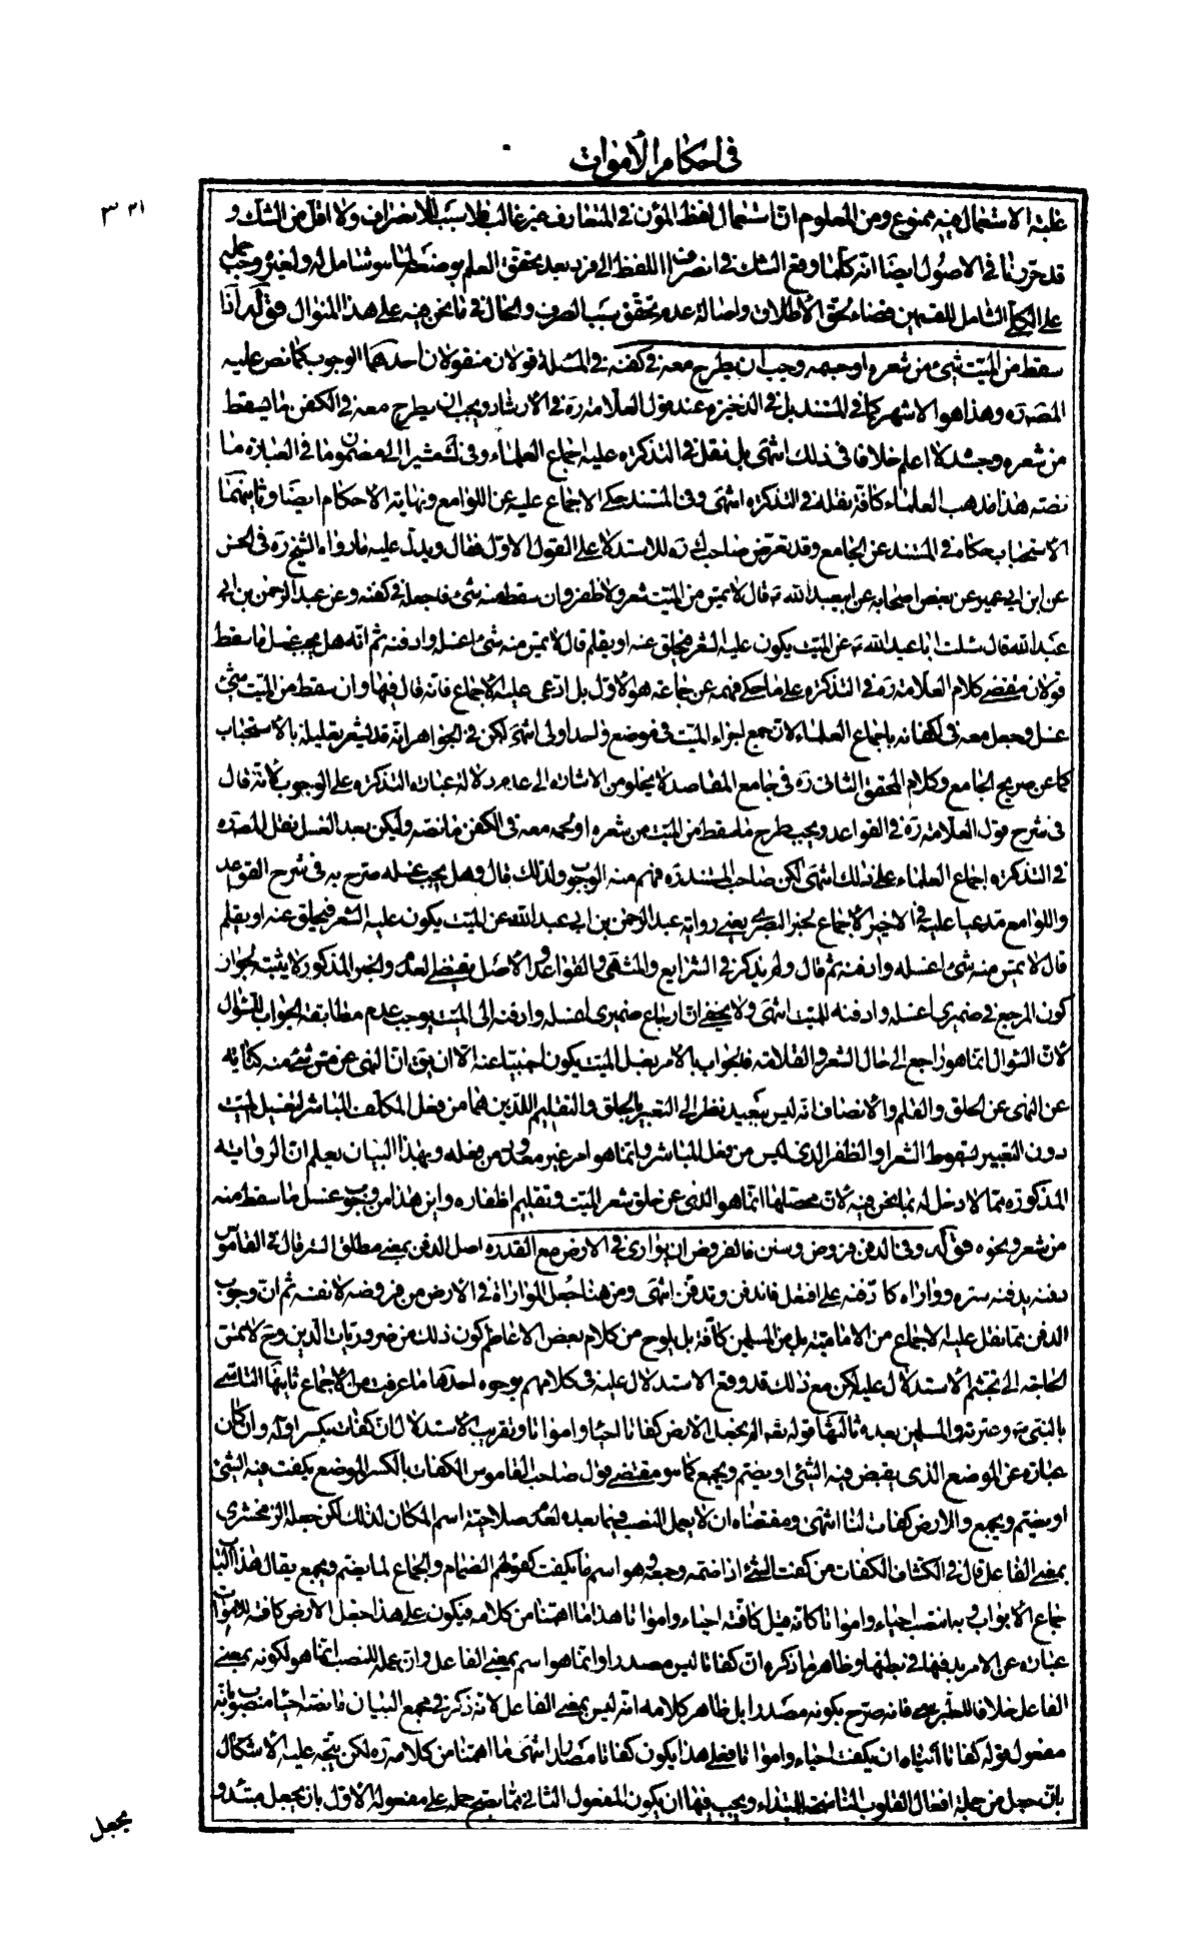 في احكام الاموات
٣٢١
غلبة الاستعمال فيه ممنوع ومن المعلوم ان استعمال لفظ المؤن في المتعارف غير غالب فلا سبب للانصراف ولا اقل من الشك و
قد حررنا في الاصول ايضا انه كلما وقع الشك في انصراف اللفظ الى فرد بعد تحقق العلم بوضعه لما هو شامل له ولغيره وجب حمله
على الكلى الشامل للقسمين قضاء لحق الاطلاق واصالة عدم تحقق سبب الصرف والحال في ما نحن فيه على هذا المنوال قوله اذا
سقط من الميت شئ من شعره او جسمه وجب ان يطرح معه في كفنه في المسئلة قولان منقولان احدهما الوجوب كما نص عليه
المصنف ره وهذا هو الاشهر كما في المستند بل في الذخيرة عند قول العلامة ره في الارشاد ويجب ان يطرح معه في الكفن ما يسقط
من شعره وجسده لا اعلم خلافا في ذلك انتهى بل نقل في التذكرة عليه اجماع العلماء وفي ك مشيرا الى مضمون ما في العبارة ما
نصه هذا مذهب العلماء كافة نقله في التذكرة انتهى وفي المستند حكى الاجماع عليه عن اللوامع ونهاية الاحكام ايضا وثانيهما
الاستحباب حكاه في المستند عن الجامع وقد تعرض صاحب ك ره للاستدلال على القول الاول فقال ويدل عليه ما رواه الشيخ ره في الحسن
عن ابن ابي عمير عن بعض اصحابه عن ابيعبد الله ع قال لا يمس من الميت شعر ولا ظفر وان سقط منه شئ فاجعله في كفنه وعن عبد الرحمن بن ابي
عبد الله قال سئلت ابا عبد الله ع عن الميت يكون عليه الشعر فيحلق عنه او يقلم قال لا يمس منه شئ اغسله وادفنه ثم انه هل يجب غسل ما سقط
قولان مقتضى كلام العلامة ره في التذكرة على ما حكى فهمه عن جماعة هو الاول بل ادعى عليه الاجماع فانه قال فيها وان سقط من الميت شئ
غسل وجعل معه في اكفانه باجماع العلماء لان جمع اجزاء الميت في موضع واحد اولى انتهى لكن في الجواهر انه قد يشعر تعليله بالاستحباب
كما عن صريح الجامع وكلام المحقق الثاني ره في جامع المقاصد لا يخلو من الاشارة الى عدم دلالة عبارة التذكرة على الوجوب لانه قال
في شرح قول العلامة ره في القواعد ويجب طرح ما سقط من الميت من شعره او لحمه معه في الكفن ما نصه وليكن بعد الغسل نقل المصنف ره
في التذكرة اجماع العلماء على ذلك انتهى لكن صاحب المستند ره فهم منه الوجوب ولذلك قال وهل يجب غسله صرح به في شرح القواعد
واللوامع مدعيا عليه في الاخير الاجماع لخبر البصري يعني رواية عبد الرحمن بن ابي عبد الله عن الميت يكون عليه الشعر فيحلق عنه او يقلم
قال لا يمس منه شئ اغسله وادفنه ثم قال ولم يذكر في الشرايع والمنتهى والقواعد والاصل يقتضى العدم والخبر المذكور لا يثبت لجواز
كون المرجع في ضميري اغسله وادفنه للميت انتهى ولا يخفى ان ارجاع ضميري اغسله وادفنه الى الميت يوجب عدم مطابقة الجواب للسؤال
لان السؤال انما هو راجع الى حال الشعر والقلامة فالجواب بالامر بغسل الميت يكون اجنبيا عنه الا ان يق ان النهي عن مس شئ منه كناية
عن النهي عن الحلق والقلم والانصاف انه ليس ببعيد نظرا الى التعبير بالحلق والتقليم اللذين هما من فعل المكلف المباشر لتغسيل الميت
دون التعبير بسقوط الشعر او الظفر الذي ليس من فعل المباشر وانما هو امر غير معدود من فعله وبهذا البيان يعلم ان الرواية
المذكورة مما لا دخل له بما نحن فيه لان محصلها انما هو النهى عن حلق شعر الميت وتقليم اظفاره واين هذا من وجوب غسل ما سقط منه
من شعر ونحوه قوله وفي الدفن فروض وسنن فالفروض ان يوارى في الارض مع القدرة اصل الدفن بمعنى مطلق الستر قال في القاموس
دفنه يدفنه ستره وواراه كادّفنه على افتعل فاندفن وتدفن انتهى ومن هنا جعل المواراة في الارض من فروضه لا نفسه ثم ان وجوب
الدفن مما نقل عليه الاجماع من الامامية بل من المسلمين كافة بل يلوح من كلام بعض الاعاظم كون ذلك من ضروريات الدين وح لا تمس
الحاجة الى تجشم الاستدلال عليه لكن مع ذلك قد وقع الاستدلال عليه في كلامهم بوجوه احدها ما عرفت من الاجماع ثانيها التاسي
بالنبي ص وعترته والمسلمين بعده ثالثها قوله تعالى الم نجعل الارض كفاتا احياء وامواتا وتقريب الاستدلال ان كفات بكسر اوله وان كان
عبارة عن الموضع الذي يقبض فيه الشئ او يضم ويجمع كما هو مقتضى قول صاحب القاموس الكفات بالكسر الموضع يكفت فيه الشئ
او يضم ويجمع والارض كفات لنا انتهى ومقتضاه ان لا يعمل النصب فيما بعده لعدم صلاحية اسم المكان لذلك لكن جعله الزمخشري
بمعنى الفاعل قال في الكشاف الكفات من كفت الشئ اذا ضمه وجمعه وهو اسم ما يكفت كقولهم الضمام والجماع لما يضم ويجمع يقال هذا الباب
جماع الابواب وبه انتصب احياء وامواتا كانه قيل كافتة احياء وامواتا هذا ما اهمنا من كلامه فيكون على هذا جعل الارض كافتة للاموات
عبارة عن الامر بدفنها في بطنها وظاهر ما ذكره ان كفاتا ليس مصدرا وانما هو اسم بمعنى الفاعل وان عمله للنصب انما هو لكونه بمعنى
الفاعل خلافا للطبرسي فانه صرح بكونه مصدرا بل ظاهر كلامه انه ليس بمعنى الفاعل لانه ذكر في مجمع البيان ما نصه احياء منصوب بانه
مفعول قوله كفاتا ان يكفت احياء وامواتا فعلى هذا يكون كفاتا مصدرا انتهى ما اهمنا من كلامه ره لكن يتجه عليه الاشكال
بان جعل من جملة افعال القلوب الناصبة للمبتداء ويجب فيها ان يكون المفعول الثاني مما يصح حمله على مفعوله الاول بان يجعل مبتداء و
يجعل